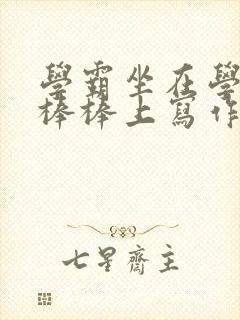 學霸坐在學
棒棒上寫作
七星齋主